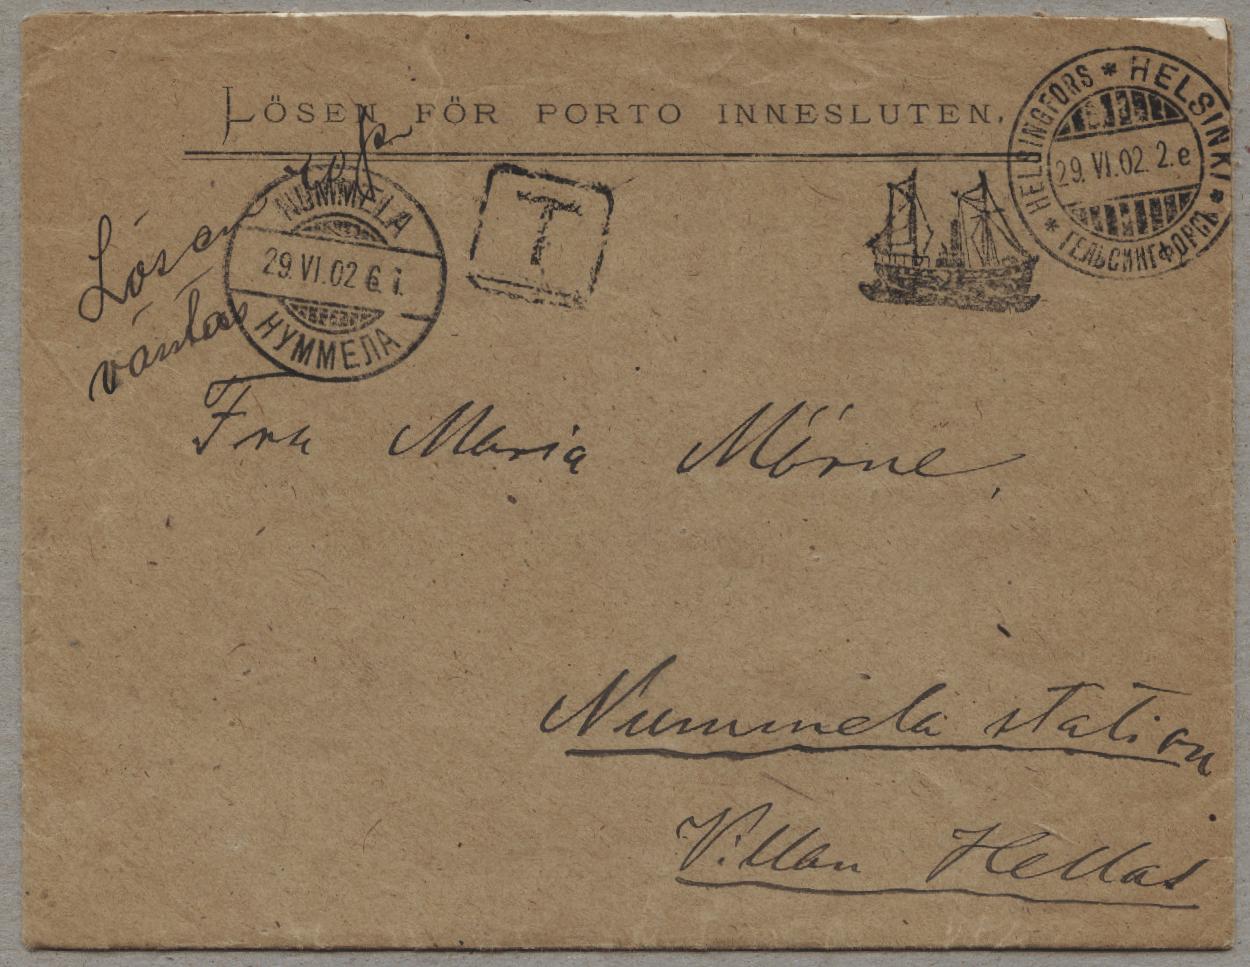 LÖSEN FÖR PORTO INNESLUTEN.
HELSINGFORS * HELSINKI * ГЕЛЬСИНГФОРСЪ *
29.VI.02. 2.e
T
NUMMELA
29.VI.02 6 i.
НУММЕЛА
Lösen
väntas
Fru Maria Mörne,
Nummela station
Villan Hellas